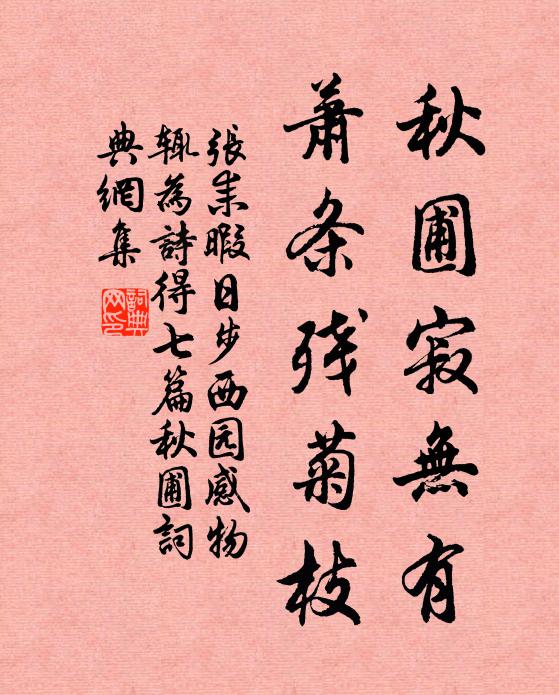 秋圃寂無有
萧条残菊枝
張耒暇日步西园感物
輒為詩得七篇秋圃詞
典網集
詞典网印